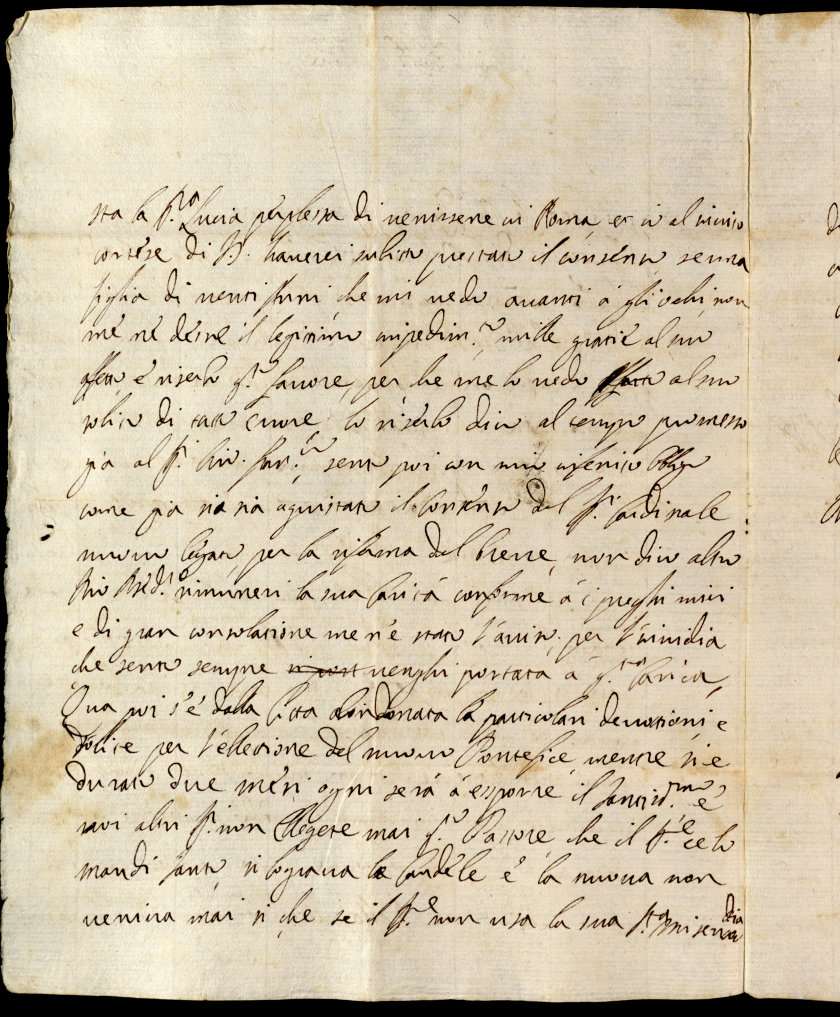 sta la Sig.ra Lucia perplessa di venirsene in Roma, et io al invito
cortese di haverei subito prestato il consenso se una
figlia di venti Anni che mi vedo avanti à gli ochi non
me ne desse il legitimo impedim.to mille gratie al suo
affetto é riserbo q.to favore, per che me lo vedo al suo
solito di tutto cuore, lo riserbo dico al tempo promesso
già al S.r sento poi con mio
come già si sia aquistato il consenso del S.r Cardinale
nuovo legato, per la riforma del breve, non dico altro
rimuneri la sua Carità conforme à i preghi miei
e di gran consolatione me n'é stato l'aviso per l'invidia
che sento sempre venghi portata à q.sta Carica,
Qua poi s'é dalla Citta abandonata le particolari devotioni e
solite per l'ellettione del nuovo Pontefice, mentre si e
durato due mesi ogni será à esporre il Santiss.mo é
voi altri S.ri non Ellegete mai q.to Pastore che il S.re ce lo
mandi santo, si lograva le Candele é la nuova non
veniva mai si che se il S.re non usa la sua S.ta misericordia